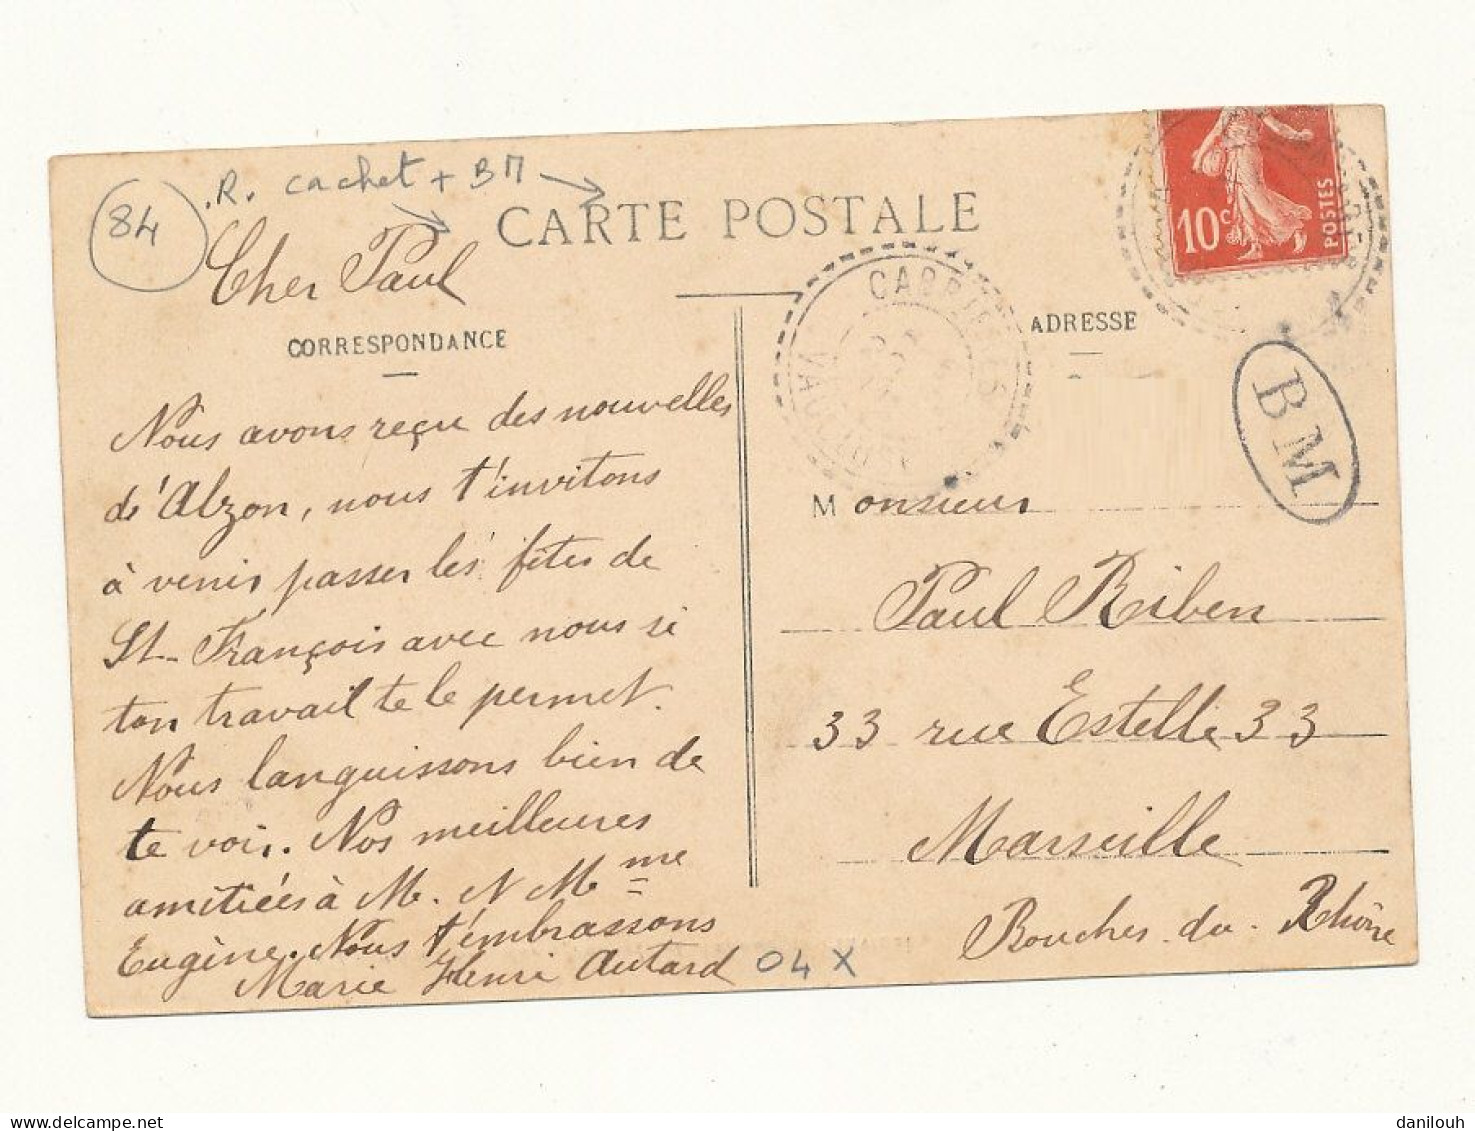 84
.R. cachet + BM
CARTE POSTALE
Cher Paul
CORRESPONDANCE
Nous avons reçu des nouvelles
d'Alzon, nous t'invitons
à venir passer les fêtes de
St-François avec nous si
ton travail te le permet.
Nous languissons bien de
te voir. Nos meilleures
amitiées à M. N Mme
Eugène. Nous t'embrassons
Marie Henri Autard
04 X
10c
POSTES
CABRIERES
VAUCLUSE
ADRESSE
BM
Monsieur
Paul Riben
33 rue Estelle 33
Marseille
Bouches du Rhône
danilouh